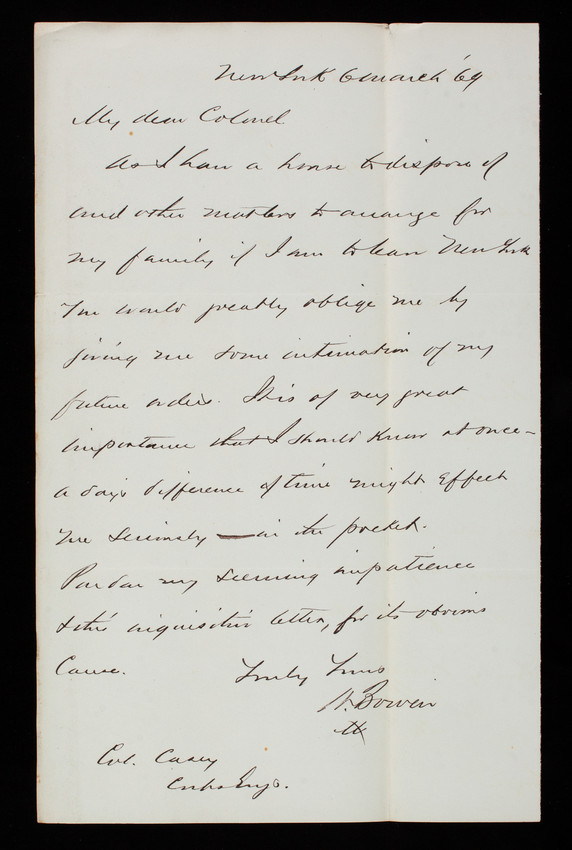 New York 6 March '69
My dear Colonel
As I have a house to dispose of
and other matters to arrange for
my family if I am to leave New York
You would greatly oblige me by
giving me some intimation of my
future orders. It is of very great
importance that I should know at once –
a days difference of time might effect
me seriously — in the pocket.
Pardon my seeming impatience
& this inquisitive letter, for its obvious
Cause.
Truly Yours
N. Bowen
Col. Casey
Corps Engs.